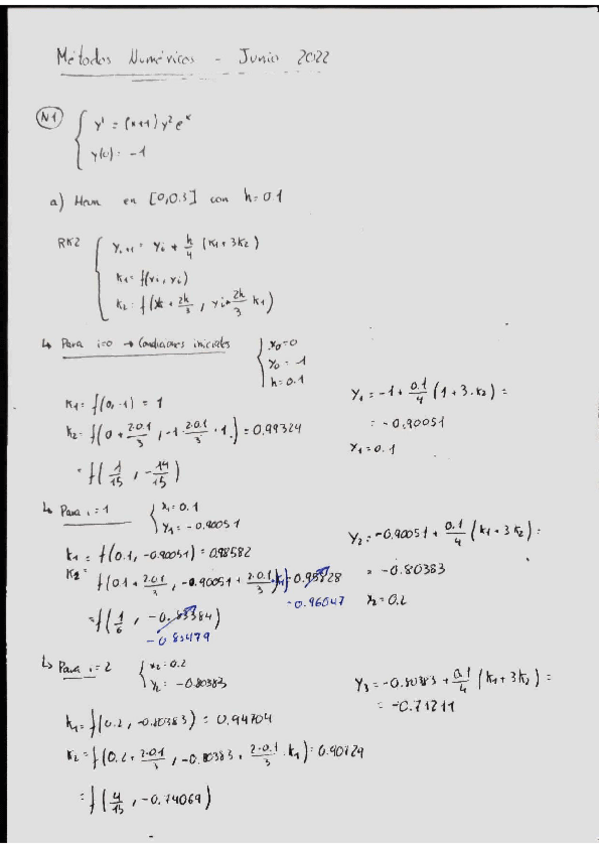 Métodos Numéricos - Junio 2022
N1 { y' = (x+1) y² eˣ
y(0) = -1
a) Heun en [0,0.3] con h=0.1
RK2 { Yi+1 = Yi + h/4 (K1+3K2)
K1 = f(xi, yi)
K2 = f(x + 2h/3, yi + 2h/3 K1)
↳ Para i=0 → Condiciones iniciales { x0=0
y0=-1
h=0.1
K1 = f(0,-1) = 1
K2 = f(0 + 2·0.1/3, -1 · 2·0.1/3 · 1) = 0.99324
= f(1/15, -14/15)
Y1 = -1 + 0.1/4 (1 + 3·K2) =
= -0.90051
X1 = 0.1
↳ Para i=1 { x1=0.1
Y1=-0.90051
K1 = f(0.1, -0.90051) = 0.98582
K2 = f(0.1 + 2·0.1/3, -0.90051 + 2·0.1/3 · K1) = 0.95828
-0.96047
= f(1/6, -0.83384)
-0.83479
Y2 = -0.90051 + 0.1/4 (K1+3K2) =
= -0.80383
X2 = 0.2
↳ Para i=2 { x2=0.2
Y2=-0.80383
K1 = f(0.2, -0.80383) = 0.94704
K2 = f(0.2 + 2·0.1/3, -0.80383 + 2·0.1/3 · K1) = 0.90729
= f(4/15, -0.74069)
Y3 = -0.8083 + 0.1/4 (K1+3K2) =
= -0.71211